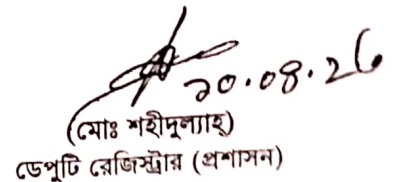 ২০.০৪.২৬
(মোঃ শহীদুল্যাহ্)
ডেপুটি রেজিস্ট্রার (প্রশাসন)